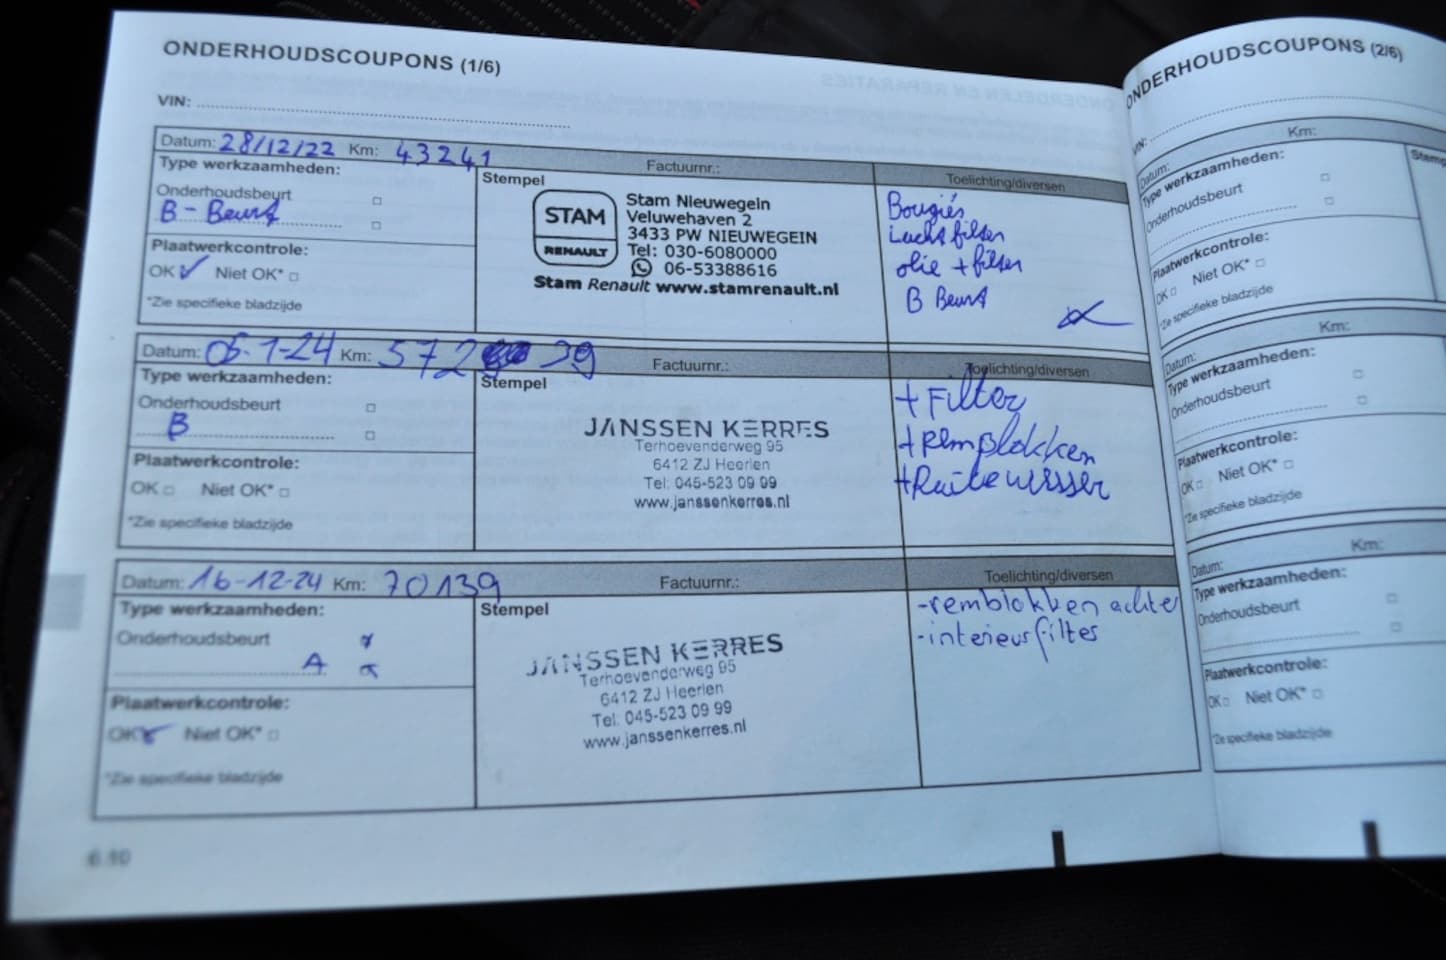 ONDERHOUDSCOUPONS (1/6)
VIN:
Datum: 28/12/22 Km: 43241 Factuurnr.: Toelichting/diversen
Type werkzaamheden:
Onderhoudsbeurt
B - Beurt
Plaatwerkcontrole:
OK Niet OK*
*Zie specifieke bladzijde
Stempel
STAM
RENAULT
Stam Nieuwegein
Veluwehaven 2
3433 PW NIEUWEGEIN
Tel: 030-6080000
06-53388616
Stam Renault www.stamrenault.nl
Bougiés
Luchtfilter
olie + filter
B Beurt
Datum: 05-1-24 Km: 572 39 Factuurnr.: Toelichting/diversen
Type werkzaamheden:
Onderhoudsbeurt
B
Plaatwerkcontrole:
OK Niet OK*
*Zie specifieke bladzijde
Stempel
JANSSEN KERRES
Terhoevenderweg 95
6412 ZJ Heerlen
Tel: 045-523 09 99
www.janssenkerres.nl
+ Filter
+ remblokken
+ Ruitewisser
Datum: 16-12-24 Km: 70139 Factuurnr.: Toelichting/diversen
Type werkzaamheden:
Onderhoudsbeurt
A
Plaatwerkcontrole:
OK Niet OK*
*Zie specifieke bladzijde
Stempel
JANSSEN KERRES
Terhoevenderweg 95
6412 ZJ Heerlen
Tel: 045-523 09 99
www.janssenkerres.nl
- remblokken achter
- interieurfilter
6.10
ONDERHOUDSCOUPONS (2/6)
VIN:
Datum: Km:
Type werkzaamheden:
Onderhoudsbeurt
Plaatwerkcontrole:
OK Niet OK*
*Zie specifieke bladzijde
Datum: Km:
Type werkzaamheden:
Onderhoudsbeurt
Plaatwerkcontrole:
OK Niet OK*
*Zie specifieke bladzijde
Datum: Km:
Type werkzaamheden:
Onderhoudsbeurt
Plaatwerkcontrole:
OK Niet OK*
*Zie specifieke bladzijde